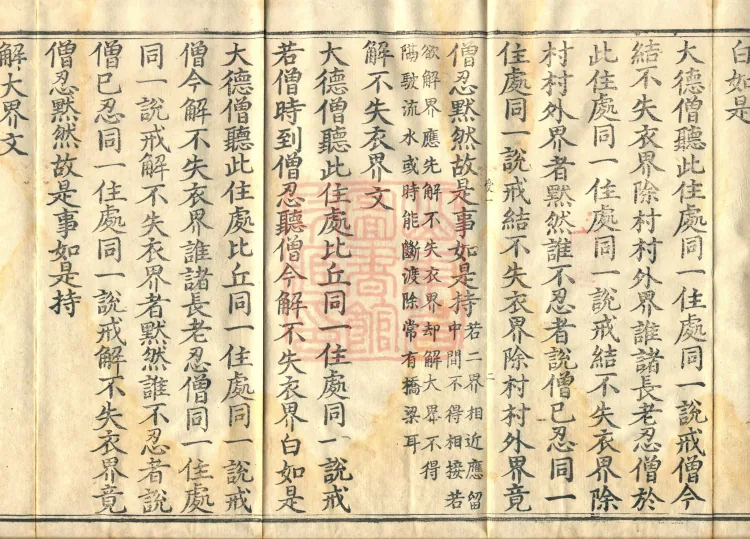 白如是
大德僧聽此住處同一住處同一說戒僧今
結不失衣界除村村外界誰諸長老忍僧於
此住處同一住處同一說戒結不失衣界除
村村外界者黙然誰不忍者說僧已忍同一
住處同一說戒結不失衣界除村村外界竟
僧忍黙然故是事如是持
若二界相近應留
中間不得相接若
欲解界應先解不失衣界却解大界不得
隔駛流水或時能斷渡除常有橋梁耳
解不失衣界文
大德僧聽此住處比丘同一住處同一說戒
若僧時到僧忍聽僧今解不失衣界白如是
大德僧聽此住處比丘同一住處同一說戒
僧今解不失衣界誰諸長老忍僧同一住處
同一說戒解不失衣界者黙然誰不忍者說
僧已忍同一住處同一說戒解不失衣界竟
僧忍黙然故是事如是持
解大界文